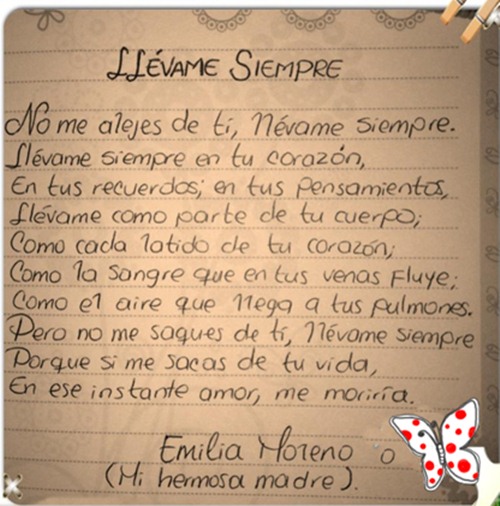 LLÉVAME SIEMPRE
No me alejes de ti, llévame siempre.
Llévame siempre en tu corazón,
En tus recuerdos; en tus pensamientos,
Llévame como parte de tu cuerpo;
Como cada latido de tu corazón;
Como la sangre que en tus venas fluye;
Como el aire que llega a tus pulmones.
Pero no me saques de ti, llévame siempre
Porque si me sacas de tu vida,
En ese instante amor, me moriría.
Emilia Moreno o
(Mi hermosa madre).